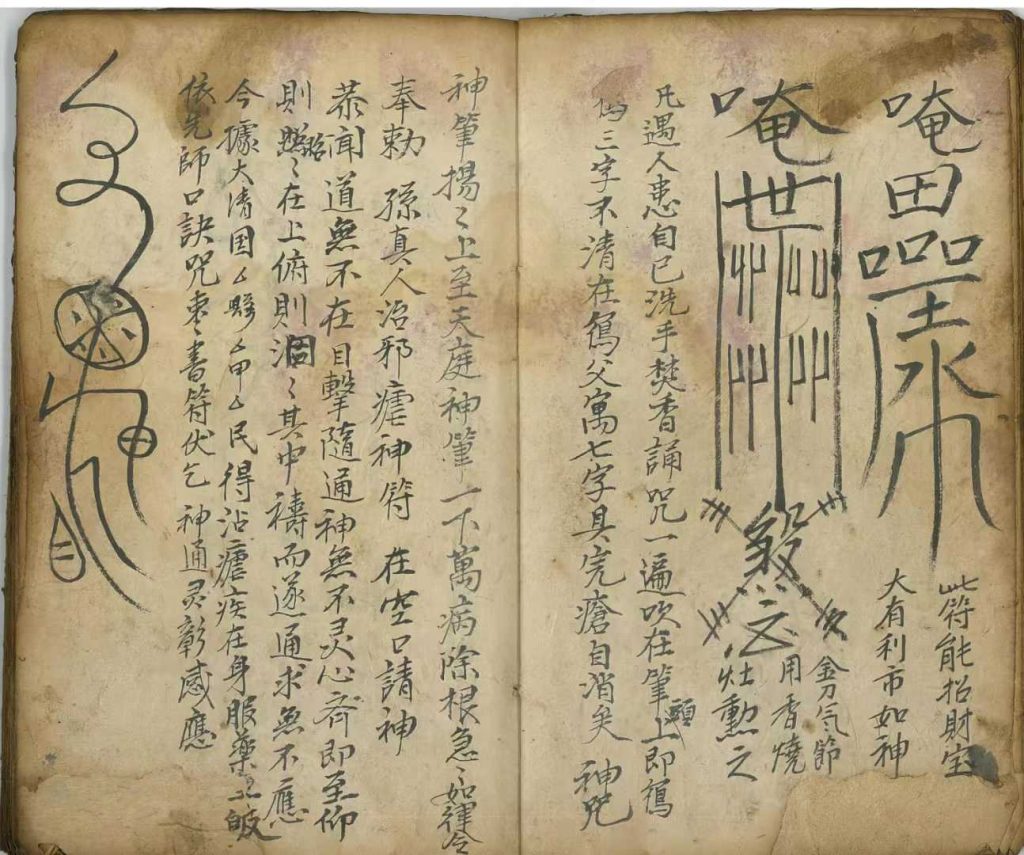 唵田
此符能招財宝
大有利市如神
唵世
煞
用香燒
灶勳之
凡遇人患自已洗手焚香誦咒一遍吹在筆上即
三字不清在父寓七字具完瘡自消矣 神咒
神筆揚々上至天庭神筆一下萬病除根急々如律令
奉勅 孫真人治邪瘧神符 在空口請神
恭聞 道無不在目擊隨通神無不灵心齐即至仰
則昭々在上俯則洞々其中禱而遂通求無不應
今據大清国厶縣厶甲厶民得沾瘧疾在身服藥
依先師口訣咒枣書符伏乞 神通灵彰感應